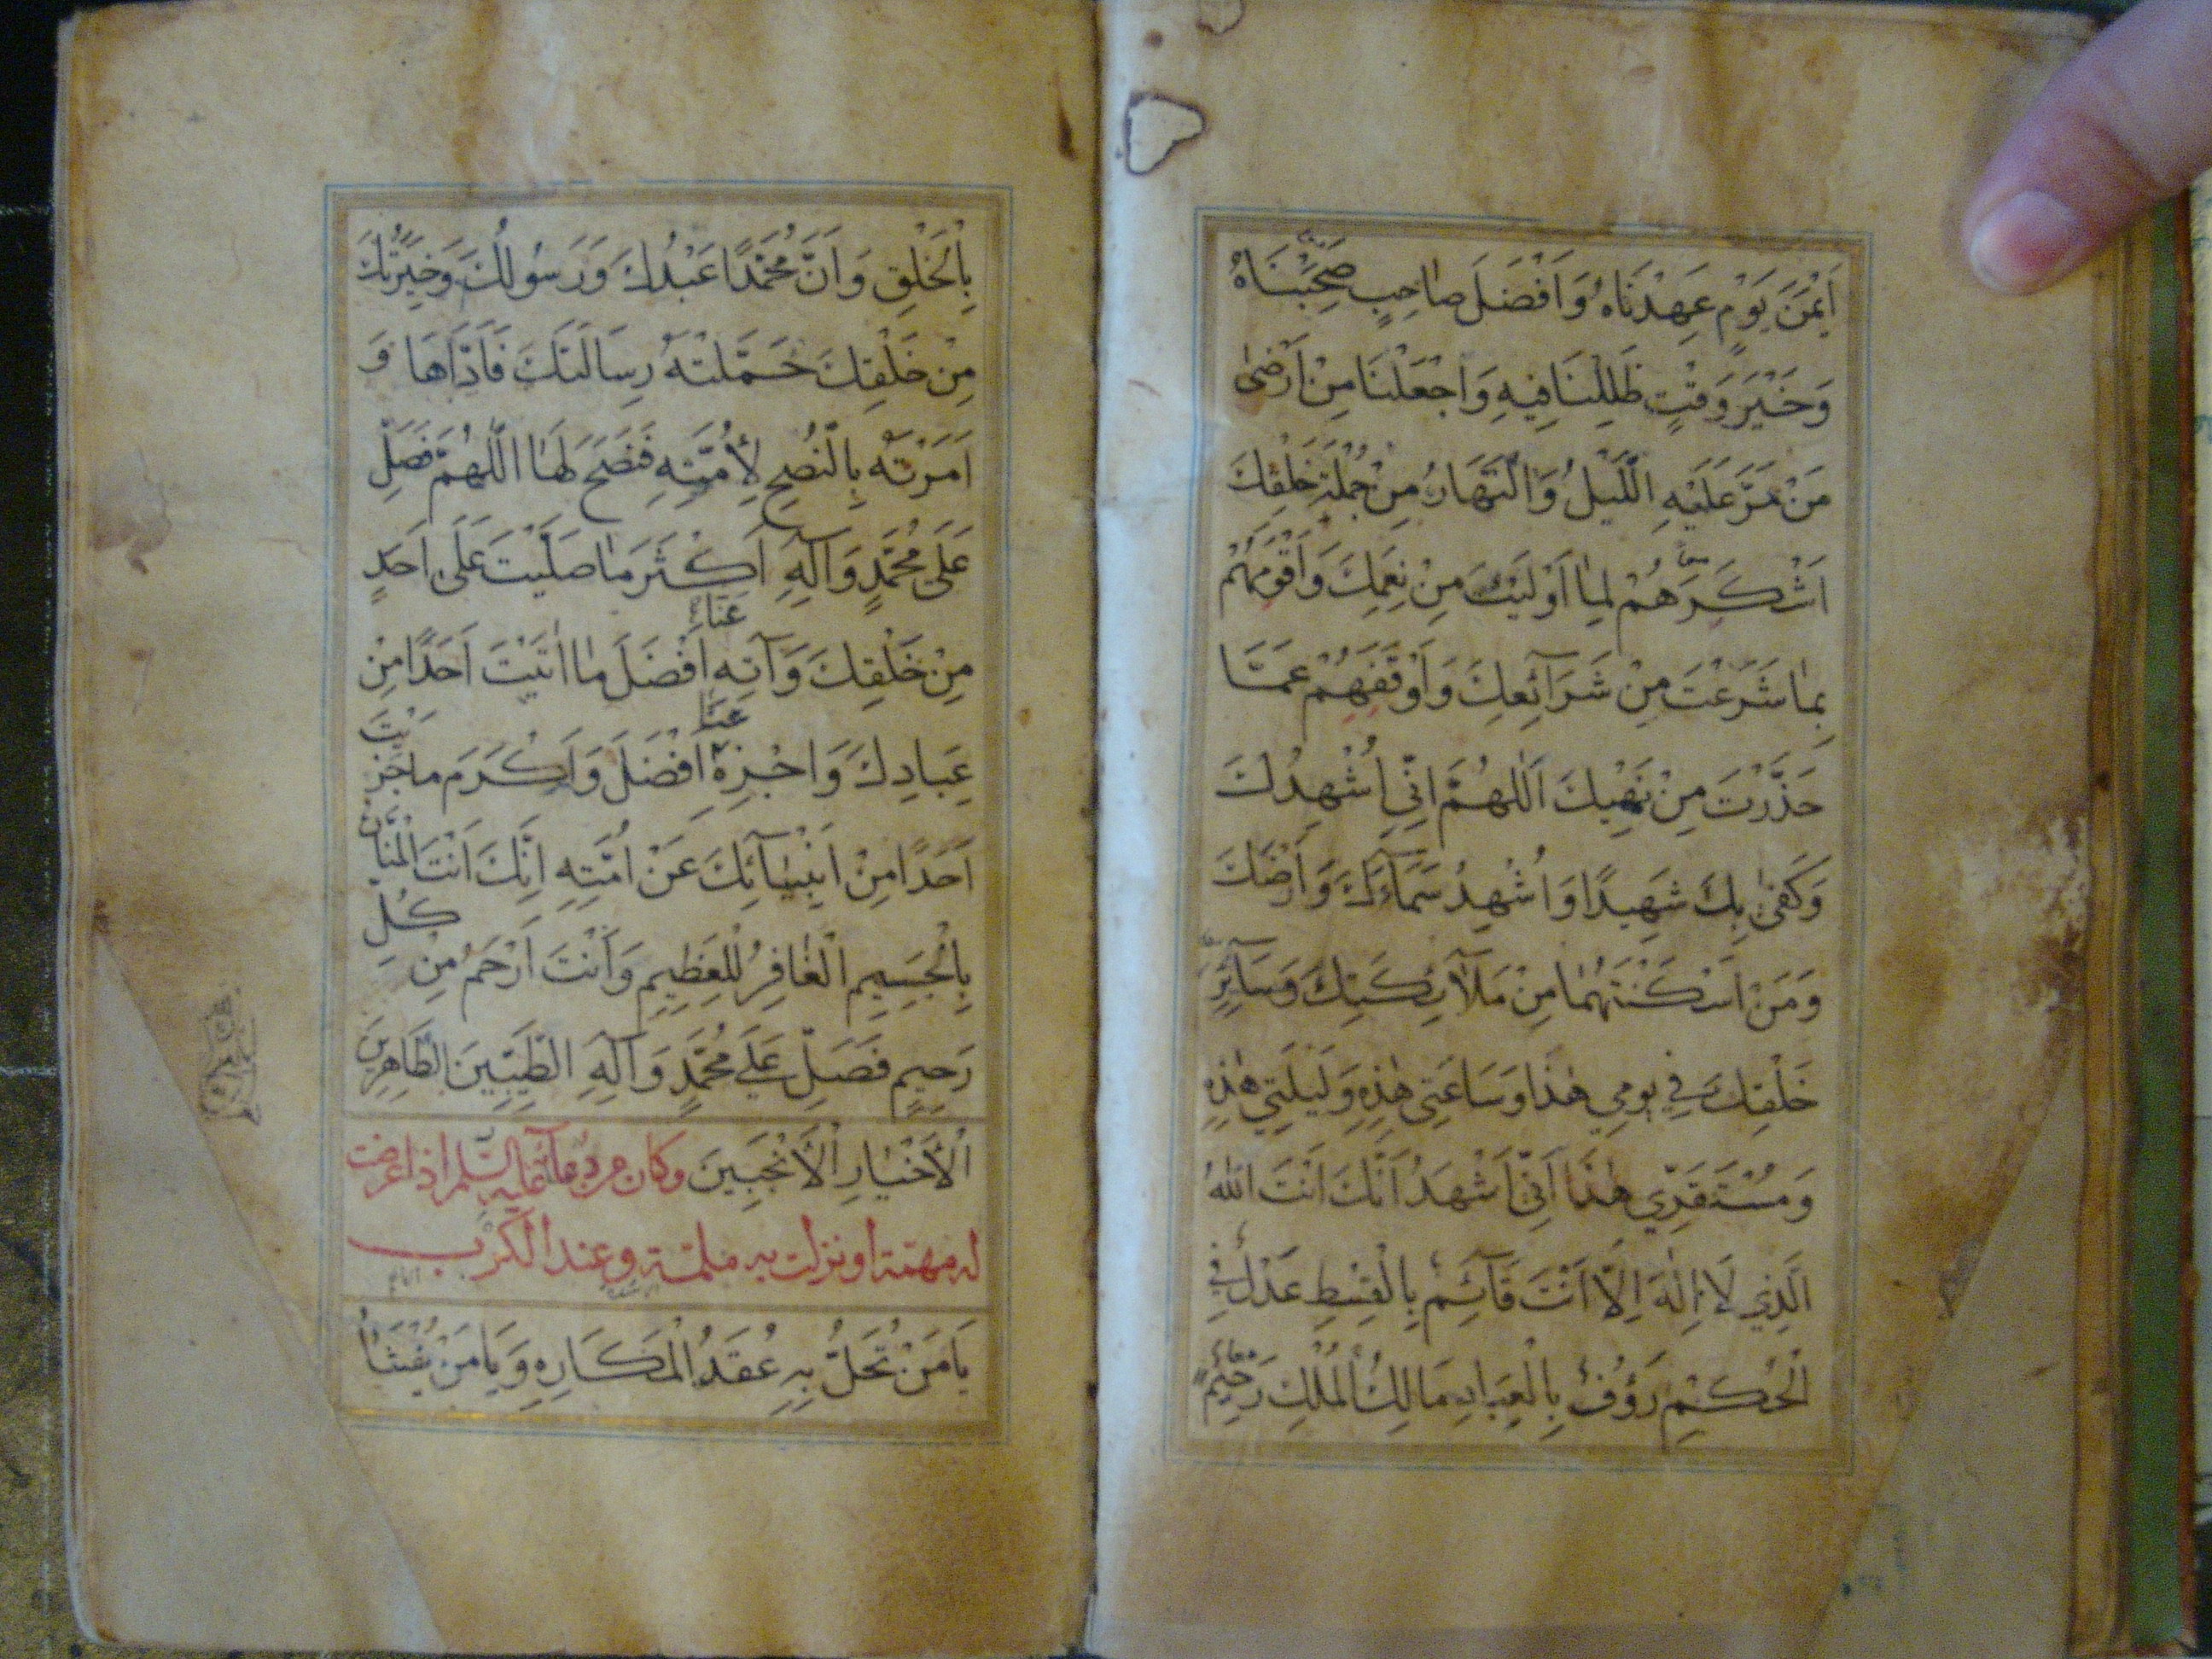 اَيْمَنَ يَوْمٍ عَهِدْنَاهُ وَاَفْضَلَ صاحِبٍ صَحِبْنَاهُ
وَخَيْرَ وَقْتٍ ظَلِلْنَا فِيهِ وَاجْعَلْنَا مِنْ اَرْضىٰ
مَنْ مَرَّ عَلَيْهِ اللَّيْلُ وَالنَّهَارُ مِنْ جُمْلَةِ خَلْقِكَ
اَشْكَرَهُمْ لِمٰا اَوْلَيْتَ مِنْ نِعَمِكَ وَاَقْوَمَهُمْ
بِمٰا شَرَعْتَ مِنْ شَرَآئِعِكَ وَاَوْقَفَهُمْ عَمَّا
حَذَّرْتَ مِنْ نَهْيِكَ اَللّٰهُمَّ اِنِّى اُشْهِدُكَ
وَكَفىٰ بِكَ شَهِيدًا وَاُشْهِدُ سَمَآءَكَ وَاَرْضَكَ
وَمَنْ اَسْكَنْتَهُمٰا مِنْ مَلَآئِكَتِكَ وَسَآئِرِ
خَلْقِكَ فِي يَوْمِي هٰذَا وَسَاعَتِى هٰذِهِ وَلَيْلَتِي هٰذِهِ
وَمُسْتَقَرِّي هٰذَا اَنِّى اَشْهَدُ اَنَّكَ اَنْتَ اللهُ
الَّذِي لَا اِلٰهَ اِلَّا اَنْتَ قَآئِمٌ بِالْقِسْطِ عَدْلٌ فِي
الْحُكْمِ رَؤُفٌ بِالْعِبَادِ مَالِكُ الْمُلْكِ رَحِيمٌ
بِالْخَلْقِ وَاَنَّ مُحَمَّدًا عَبْدُكَ وَرَسُولُكَ وَخِيَرَتُكَ
مِنْ خَلْقِكَ حَمَّلْتَهُ رِسَالَتَكَ فَاَدّٰاهَا وَ
اَمَرْتَهُ بِالنُّصْحِ لِأُمَّتِهِ فَنَصَحَ لَهَا اللّٰهُمَّ فَصَلِّ
عَلَى مُحَمَّدٍ وَآلِهِ اَكْثَرَ مٰا صَلَّيْتَ عَلَى اَحَدٍ
مِنْ خَلْقِكَ وَآتِهِ عَنَّا اَفْضَلَ مٰا اٰتَيْتَ اَحَدًا مِنْ
عِبَادِكَ وَاجْزِهِ عَنَّا اَفْضَلَ وَاَكْرَمَ ما جَزَيْتَ
اَحَدًا مِنْ اَنْبِيٰآئِكَ عَنْ اُمَّتِهِ اِنَّكَ اَنْتَ الْمَنَّانُ
بِالْجَسِيمِ الْغَافِرُ لِلْعَظِيمِ وَاَنْتَ اَرْحَمُ مِنْ كُلِّ
رَحِيمٍ فَصَلِّ عَلَى مُحَمَّدٍ وَآلِهِ الطَّيِّبِينَ الطَّاهِرِينَ
الْأَخْيَارِ الْأَنْجَبِينَ وكان من دعائه عليه السلم اذا عرضت
له مهمة او نزلت به ملمة وعند الكرب
يَا مَنْ تُحَلُّ بِهِ عُقَدُ الْمَكَارِهِ وَيَا مَنْ يُفْثَأُ